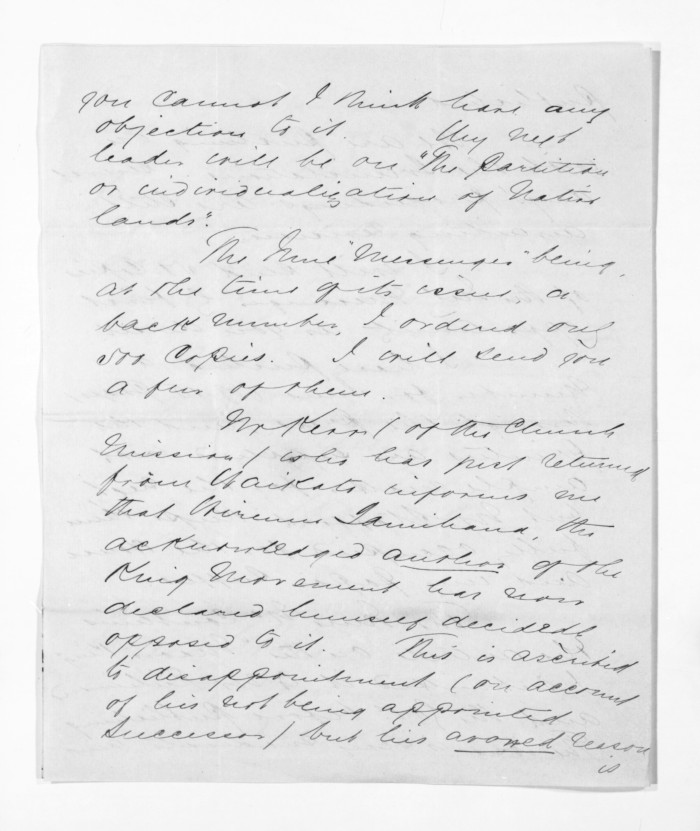 you cannot I think have any
objection to it. My next
leader will be on "The Partition
or individualization of Native
lands".
The June "Messenger" being,
at the time of its issue a
back number, I ordered only
500 Copies. I will send you
a few of them.
Mr Kerr / of the Church
Mission / who has just returned
from Waikato informs me
that Wiremu Tamihana, the
acknowledged author of the
King Movement has now
declared himself decidedly
opposed to it. This is ascribed
to disappointment (on account
of his not being appointed
Successor / but his avowed reason
is